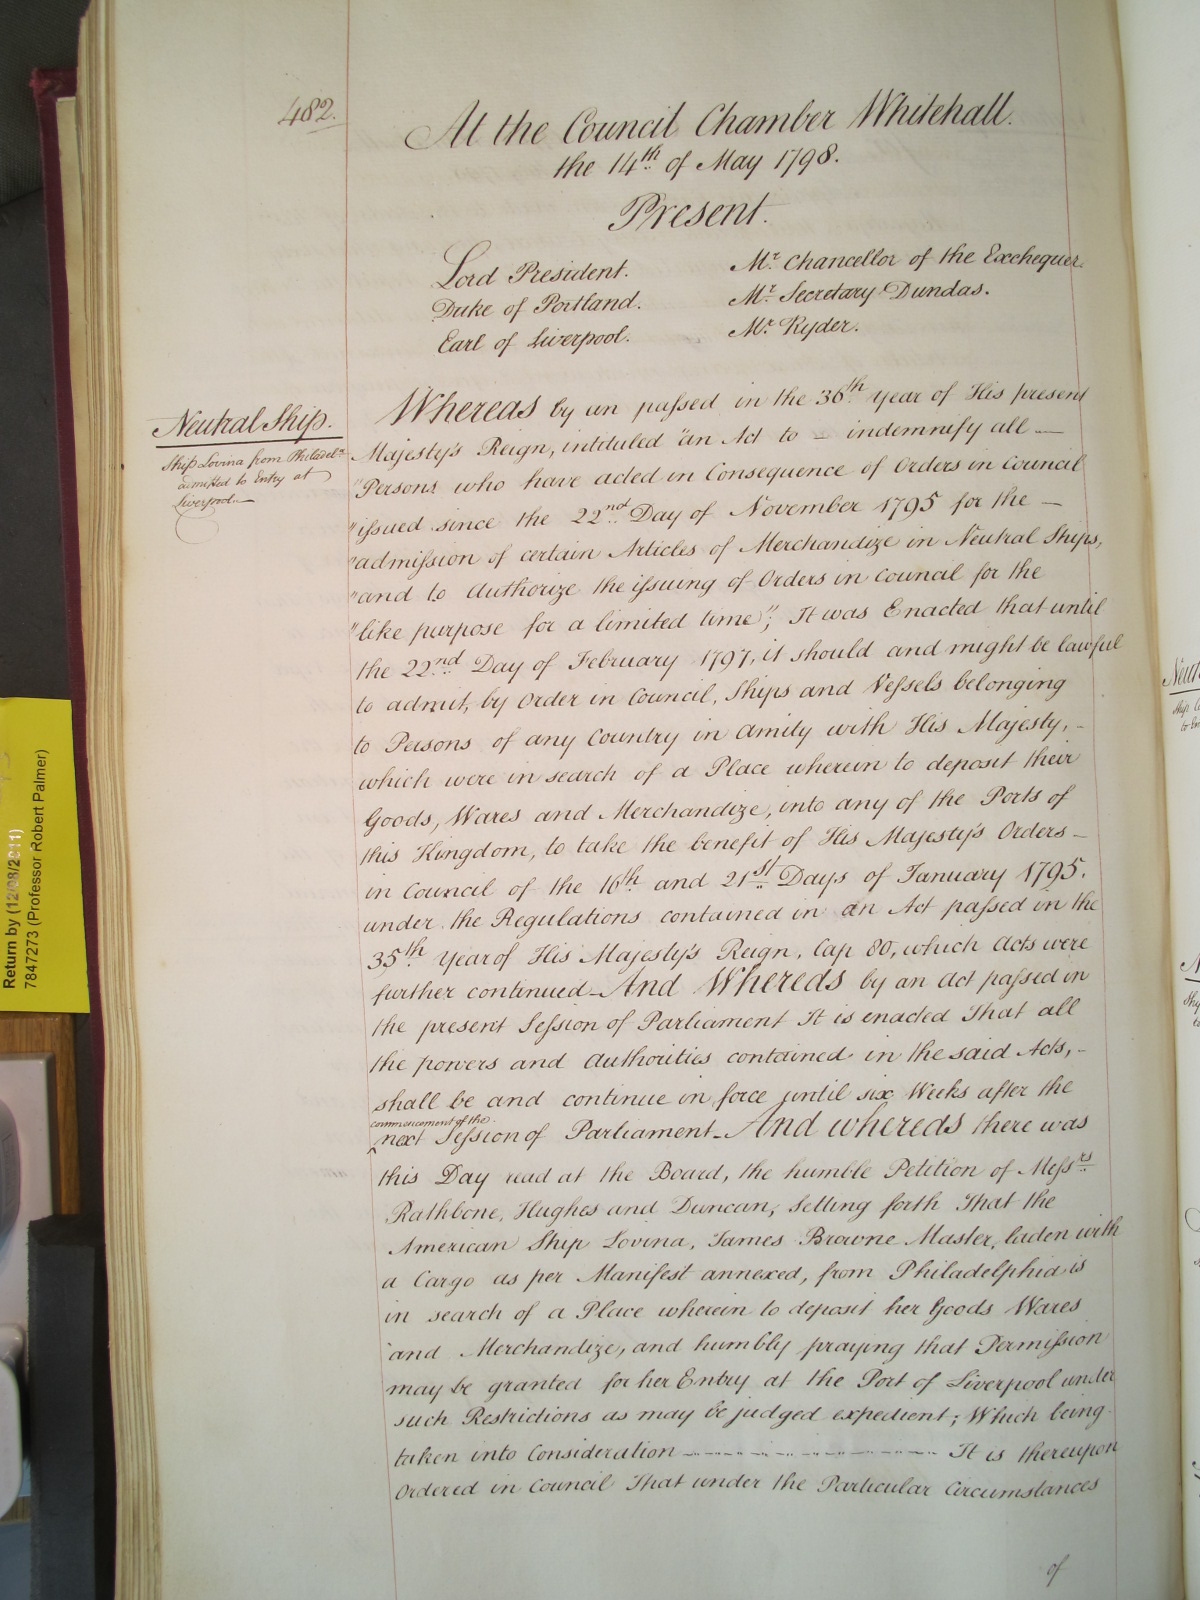 482.
At the Council Chamber Whitehall.
the 14th of May 1798.
Present.
Lord President.
Duke of Portland.
Earl of Liverpool.
Mr. Chancellor of the Exchequer.
Mr. Secretary Dundas.
Mr. Ryder.
Neutral Ship.
Ship Lovina from Philadela.
admitted to Entry at
Liverpool.
Whereas by an passed in the 36th. Year of His present
Majesty's Reign, intituled "an Act to – indemnify all —
"Persons who have acted in Consequence of Orders in Council
"issued since the 22nd. Day of November 1795 for the —
"admission of certain Articles of Merchandize in Neutral Ships,
"and to Authorize the issuing of Orders in Council for the
"like purpose for a limited time"; It was Enacted that until
the 22nd. Day of February 1797, it should and might be lawful
to admit, by Order in Council, Ships and Vessels belonging
to Persons of any Country in Amity with His Majesty, -
which were in search of a Place wherein to deposit their
Goods, Wares and Merchandize, into any of the Ports of
this Kingdom, to take the benefit of His Majesty's Orders –
in Council of the 16th. and 21st. Days of January 1795.
under the Regulations contained in an Act passed in the
35th. Year of His Majesty's Reign, Cap 80, which Acts were
further continued – And Whereas by an Act passed in
the present Session of Parliament It is enacted That all
the powers and Authorities contained in the said Acts, -
shall be and continue in force until six Weeks after the
commencement of the
next Session of Parliament – And whereas there was
this Day read at the Board, the humble Petition of Messrs.
Rathbone, Hughes and Duncan, setting forth That the
American Ship Lovina, James Browne Master, laden with
a Cargo as per Manifest annexed, from Philadelphia is
in search of a Place wherein to deposit her Goods Wares
and Merchandize, and humbly praying that Permission
may be granted for her Entry at the Port of Liverpool under
such Restrictions as may be judged expedient; Which being
taken into Consideration ---------- It is thereupon
Ordered in Council That under the Particular Circumstances
of
Return by (12/08/2011)
7847273 (Professor Robert Palmer)